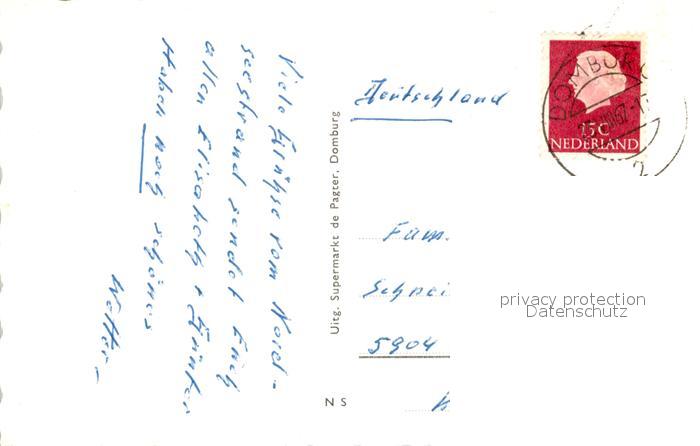 Viele Grüße vom Nord-
seestrand sendet Euch
allen Elisabeth + Günter
Haben noch schönes
Wetter.
Uitg. Supermarkt de Pagter, Domburg
N S
Deutschland
Fam.
Schnei
5904
DOMBURG
15C
NEDERLAND
2
privacy protection
Datenschutz